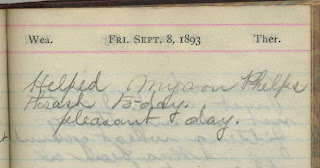 Wea. FRI. SEPT. 8, 1893 Ther.
Helped Myron Phelps
thrash ½ day.
pleasant day.